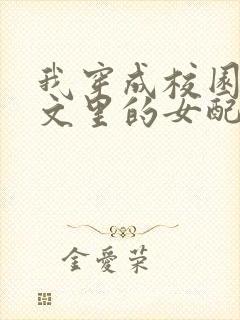 我穿成校园
文里的女配
金爱荣